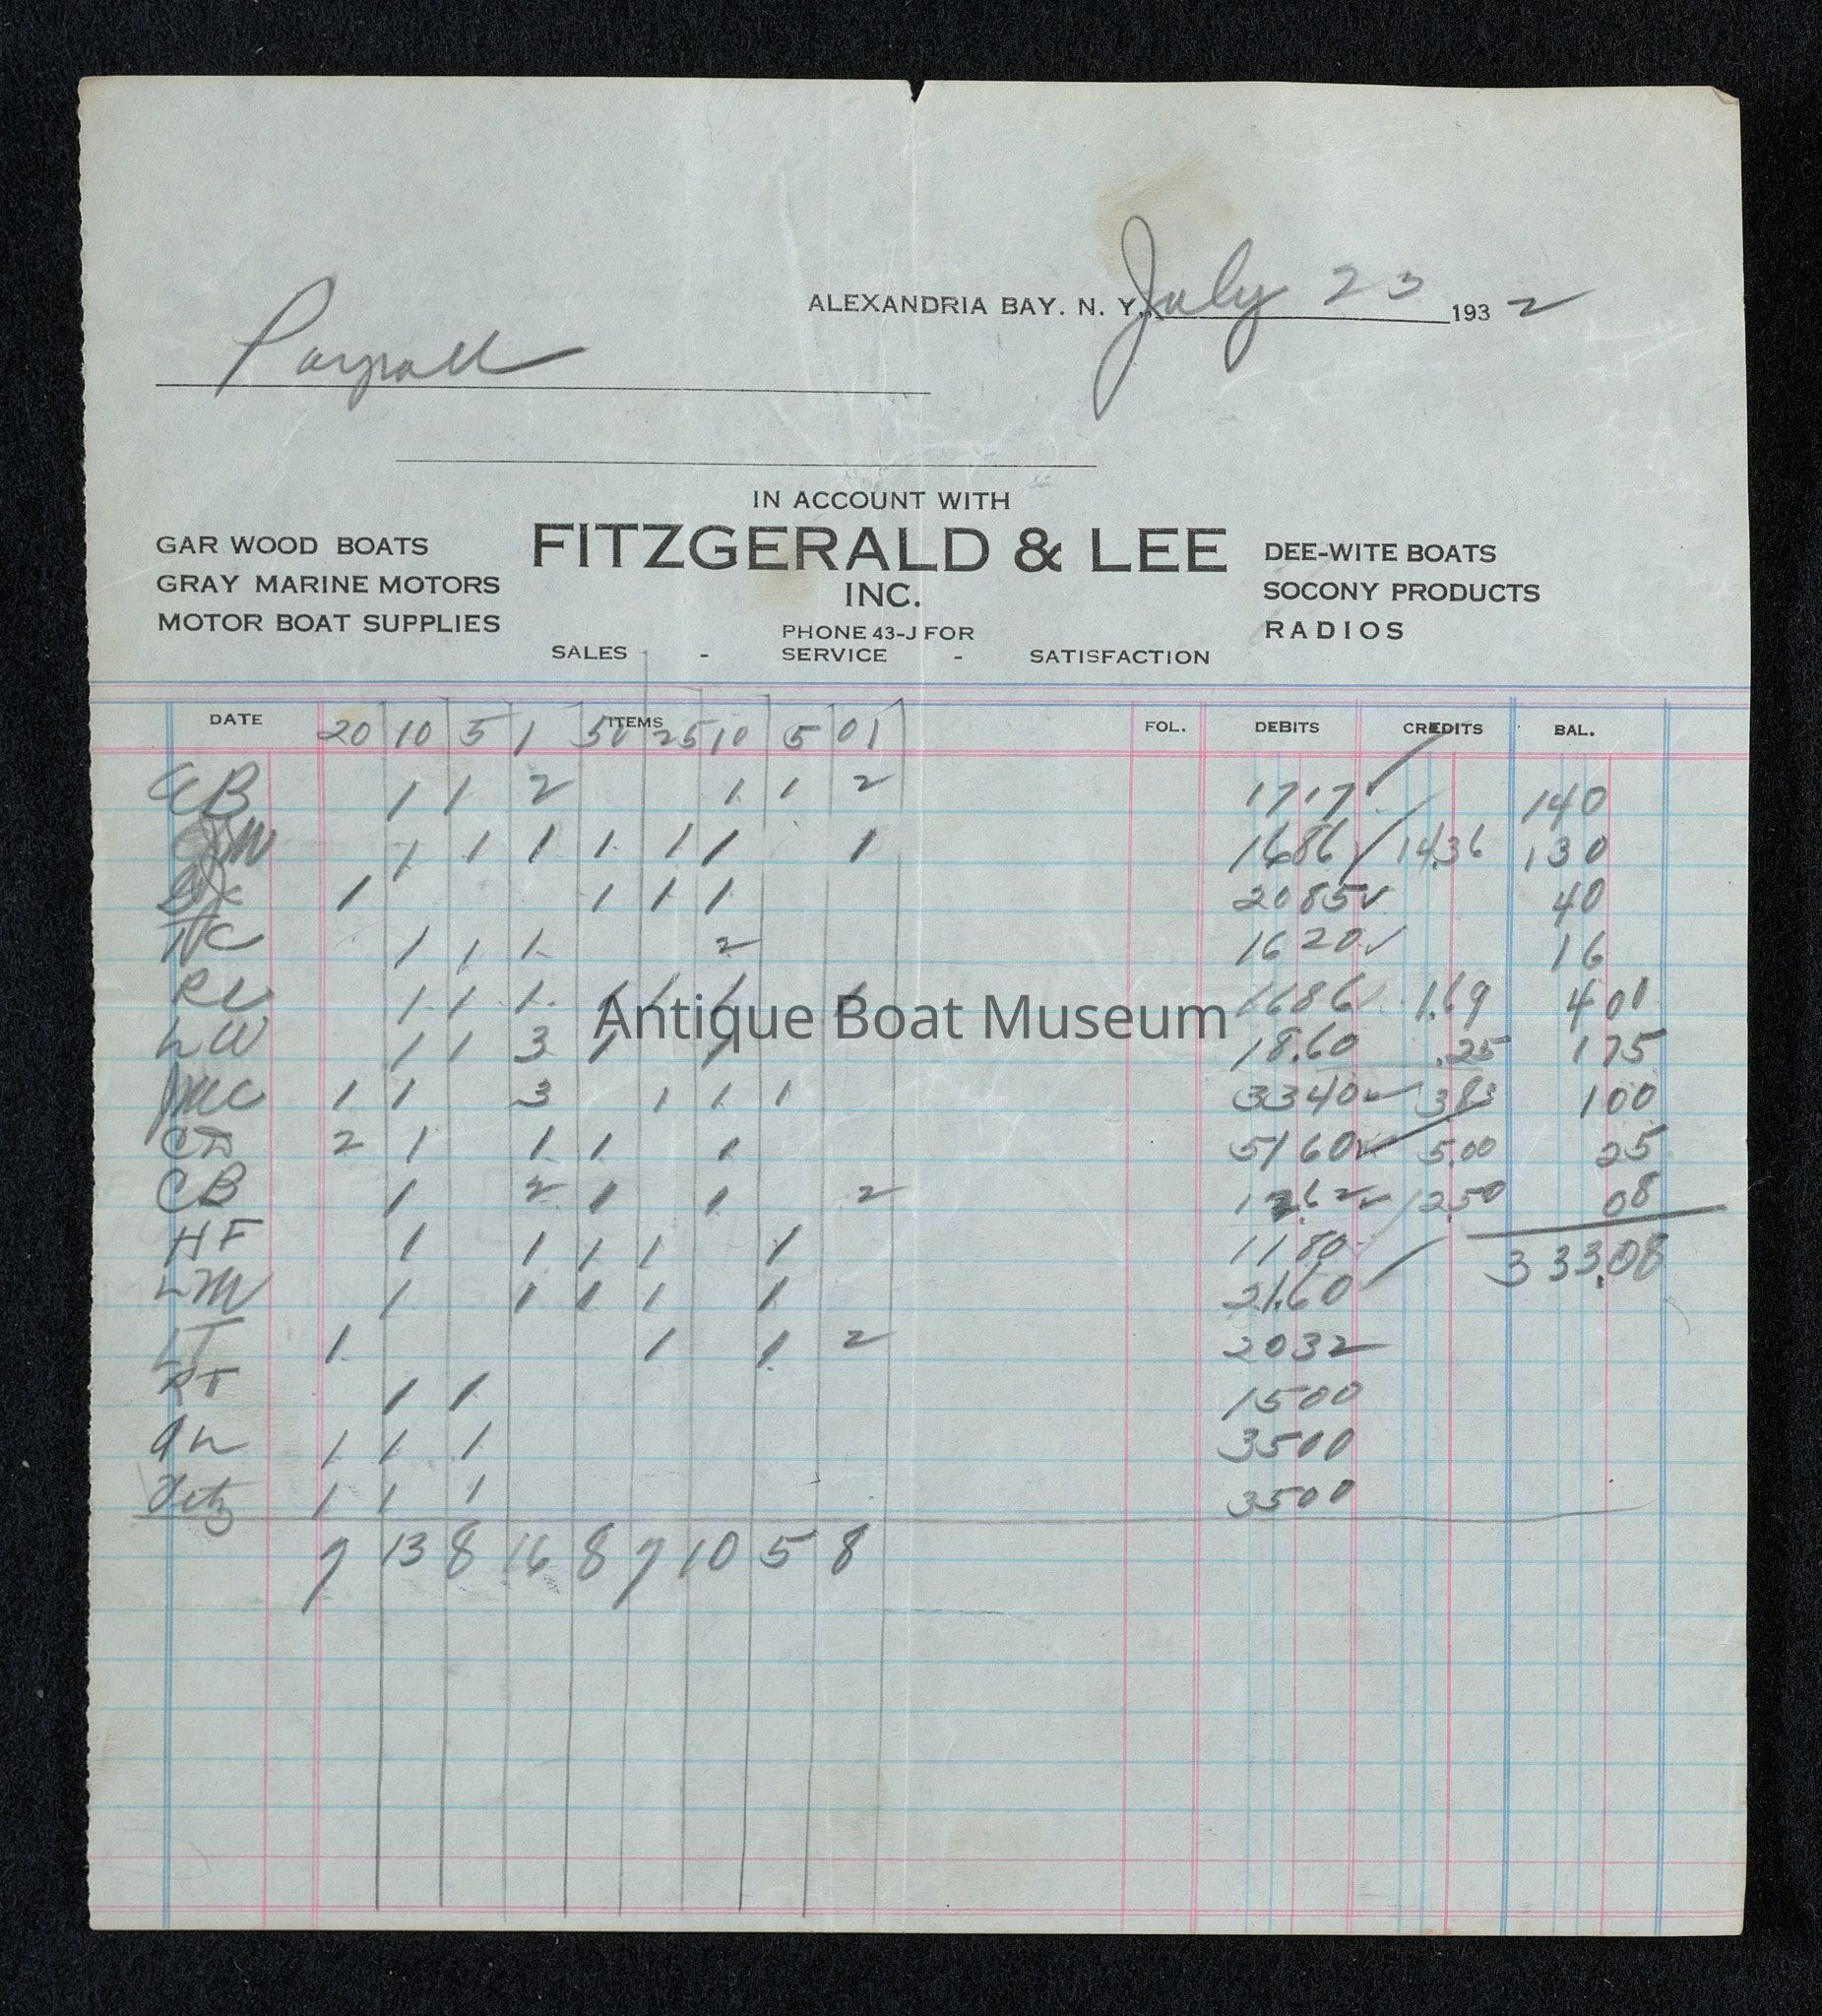 ALEXANDRIA BAY. N. Y. July 23 1932
Payroll
IN ACCOUNT WITH
FITZGERALD & LEE
INC.
GAR WOOD BOATS
GRAY MARINE MOTORS
MOTOR BOAT SUPPLIES
DEE-WITE BOATS
SOCONY PRODUCTS
RADIOS
PHONE 43-J FOR
SALES - SERVICE - SATISFACTION
DATE ITEMS FOL. DEBITS CREDITS BAL.
20 10 5 1 50 25 10 5 01
1 1 2 1 1 2 17.17 140
1 1 1 1 1 1 1 1686 14.36 130
1 1 1 1 2085 40
1 1 1 2 1620 16
RL 1 1 1 1 1 1 1 1686 1.69 401
LW 1 1 3 1 1 18.60 .25 175
JMC 1 1 3 1 1 1 3340 383 100
CD 2 1 1 1 1 5160 5.00 25
CB 1 2 1 1 2 1262 1250 08
HF 1 1 1 1 1 1180 333.08
LM 1 1 1 1 1 21.60
LT 1 1 1 2 2032
RT 1 1 1500
1 1 1 3500
Fitz 1 1 1 3500
7 13 8 16 8 7 10 5 8
Antique Boat Museum